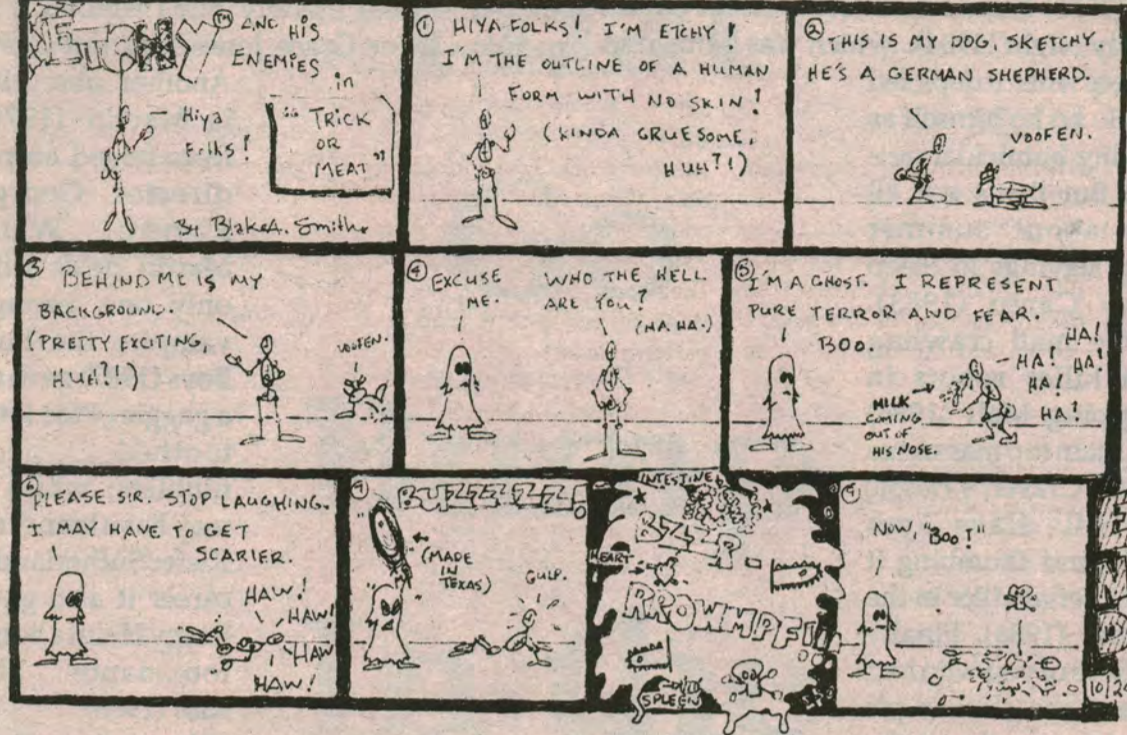 ETCHY ™
AND HIS
ENEMIES
in
"TRICK
OR
MEAT"
Hiya
Folks!
By Blake A. Smith.
① HIYA FOLKS! I'M ETCHY!
I'M THE OUTLINE OF A HUMAN
FORM WITH NO SKIN!
(KINDA GRUESOME,
HUH?!)
② THIS IS MY DOG, SKETCHY.
HE'S A GERMAN SHEPHERD.
VOOFEN.
③ BEHIND ME IS MY
BACKGROUND.
(PRETTY EXCITING,
HUH?!)
VOOFEN.
④ EXCUSE
ME.
WHO THE HELL
ARE YOU?
(HA HA.)
⑤ I'M A GHOST. I REPRESENT
PURE TERROR AND FEAR.
BOO.
HA!
HA! HA!
HA!
HA!
MILK
COMING
OUT OF
HIS NOSE.
⑥ PLEASE SIR. STOP LAUGHING.
I MAY HAVE TO GET
SCARIER.
HAW!
HAW!
HAW
HAW!
⑦ BUZZZZZ!
(MADE
IN
TEXAS)
GULP.
INTESTINES
BZZR-
HEART
RROWMPF!!
SPLEEN
⑨
NOW, "BOO!"
10/2